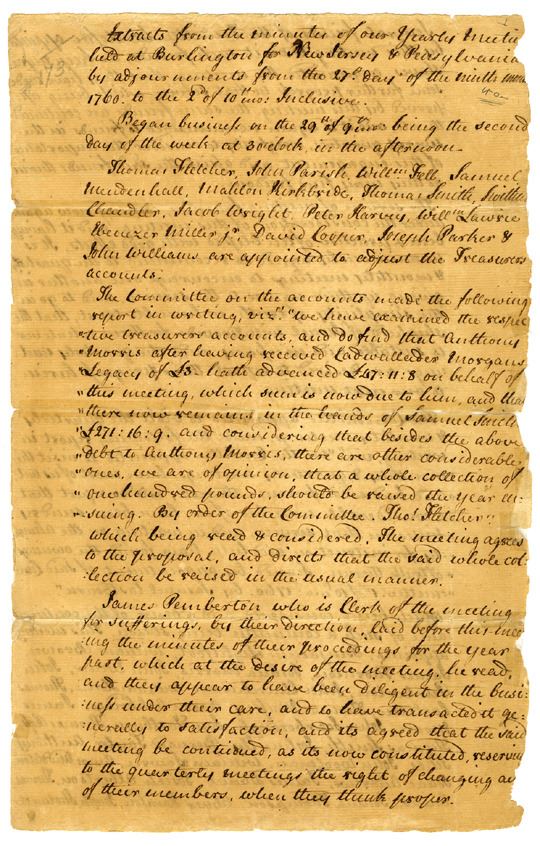 Extracts from the minutes of our Yearly Meetin
held at Burlington for New Jersey & Pensylvania
by adjournments from the 27th day of the ninth mon
1760. to the 2d of 10th mo: Inclusive.
Began business on the 29th of 9th mo: being the second
day of the week, at 3 oClock in the afternoon.
Thomas Fletcher, John Parish, Willm Fell, Samuel
Mendenhall, Mahlon Kirkbride, Thomas Smith, Swithin
Chandler, Jacob Wright, Peter Harvey, Willm Lawrie
Ebenezer Miller jr, David Cooper, Joseph Parker &
John Williams are appointed to adjust the Treasurers
accounts.
The Committee on the accounts made the following
report in writing, vizt "we have examined the respec
"tive treasurers accounts, and do find that Anthony
"Morris after having received Cadwallader Morgans
"Legacy of £3. hath advanced £47:11:8 on behalf of
"this meeting, which sum is now due to him, and that
"there now remains in the hands of Samuel Smith
"£271:16:9. and considering that besides the above
"debt to Anthony Morris, there are other considerable
"ones, we are of opinion, that a whole collection of
"one hundred pounds, should be raised the year en-
"suing. By order of the Committee. Thos Fletcher"
which being read & considered, The meeting agrees
to the proposal, and directs that the said whole col-
:lection be raised in the usual manner.
James Pemberton who is Clerk of the meeting
for sufferings, by their direction, laid before this meet
:ing the minutes of their proceedings for the year
past, which at the desire of the meeting, he read,
and they appear to have been diligent in the busi-
:ness under their care, and to have transacted it ge-
:nerally to satisfaction, and its agreed that the said
meeting be continued, as its now constituted, reserving
to the quarterly meetings the right of changing any
of their members, when they think proper.